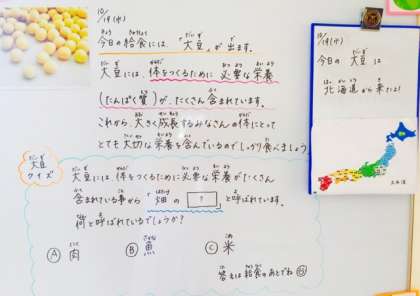 10/19(水)
今日の給食には、「大豆」が出ます。
大豆には、体をつくるために必要な栄養
(たんぱく質)が、たくさん含まれています。
これから、大きく成長するみなさんの体にとって
とても大切な栄養を含んでいるのでしっかり食べましょう
大豆クイズ
大豆には体をつくるために必要な栄養がたくさん
含まれている事から「畑の ? 」と呼ばれています。
何と呼ばれているでしょうか？
Ⓐ 肉 Ⓑ 魚 Ⓒ 米
答えは給食のあとでね
10/19(水)
今日の大豆は
北海道から来たよ!